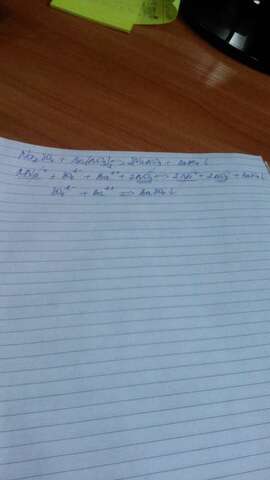 Na₂SO₄ + Ba(NO₃)₂ → 2NaNO₃ + BaSO₄↓
2Na⁺ + SO₄²⁻ + Ba²⁺ + 2NO₃⁻ → 2Na⁺ + 2NO₃⁻ + BaSO₄↓
SO₄²⁻ + Ba²⁺ → BaSO₄↓